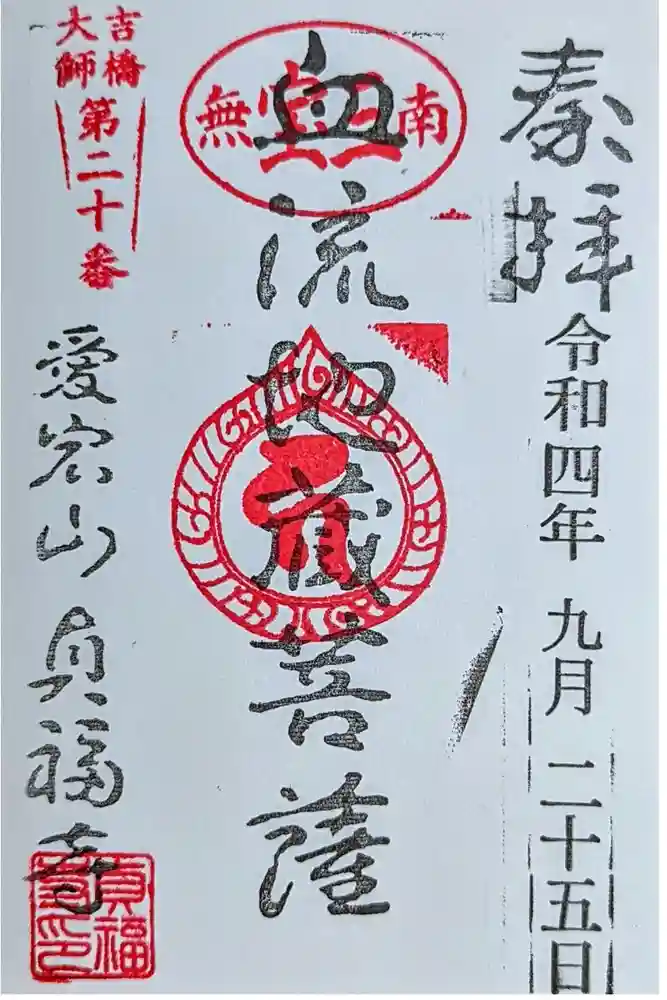 奉拝
令和四年 九月 二十五日
南無三宝
血流地蔵菩薩
吉橋
大師
第二十番
愛宕山 真福寺
真福
寺印